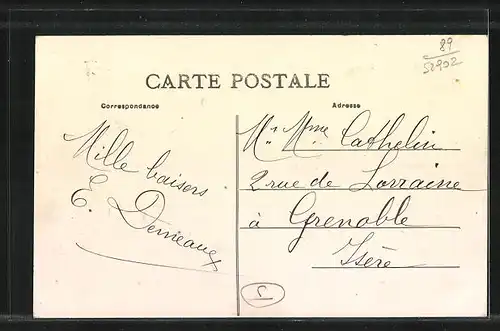 89
52902
CARTE POSTALE
Correspondance
Adresse
Mille baisers
E. Demeaux
Mr. Mme. Cathelin
2 rue de Lorraine
à Grenoble
Isère